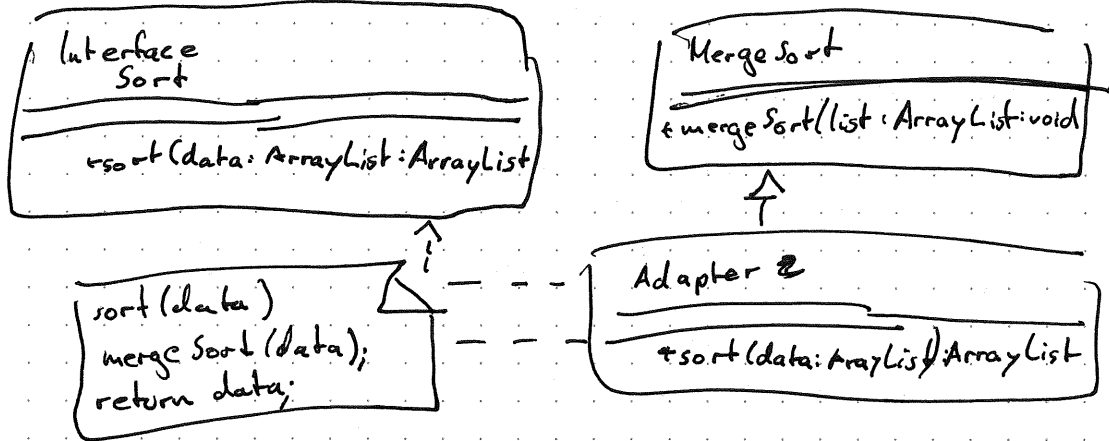 Interface
Sort
+sort(data: ArrayList:ArrayList
MergeSort
+mergeSort(list:ArrayList:void
sort(data)
mergeSort(data);
return data;
Adapter
+sort(data:ArayList):ArrayList